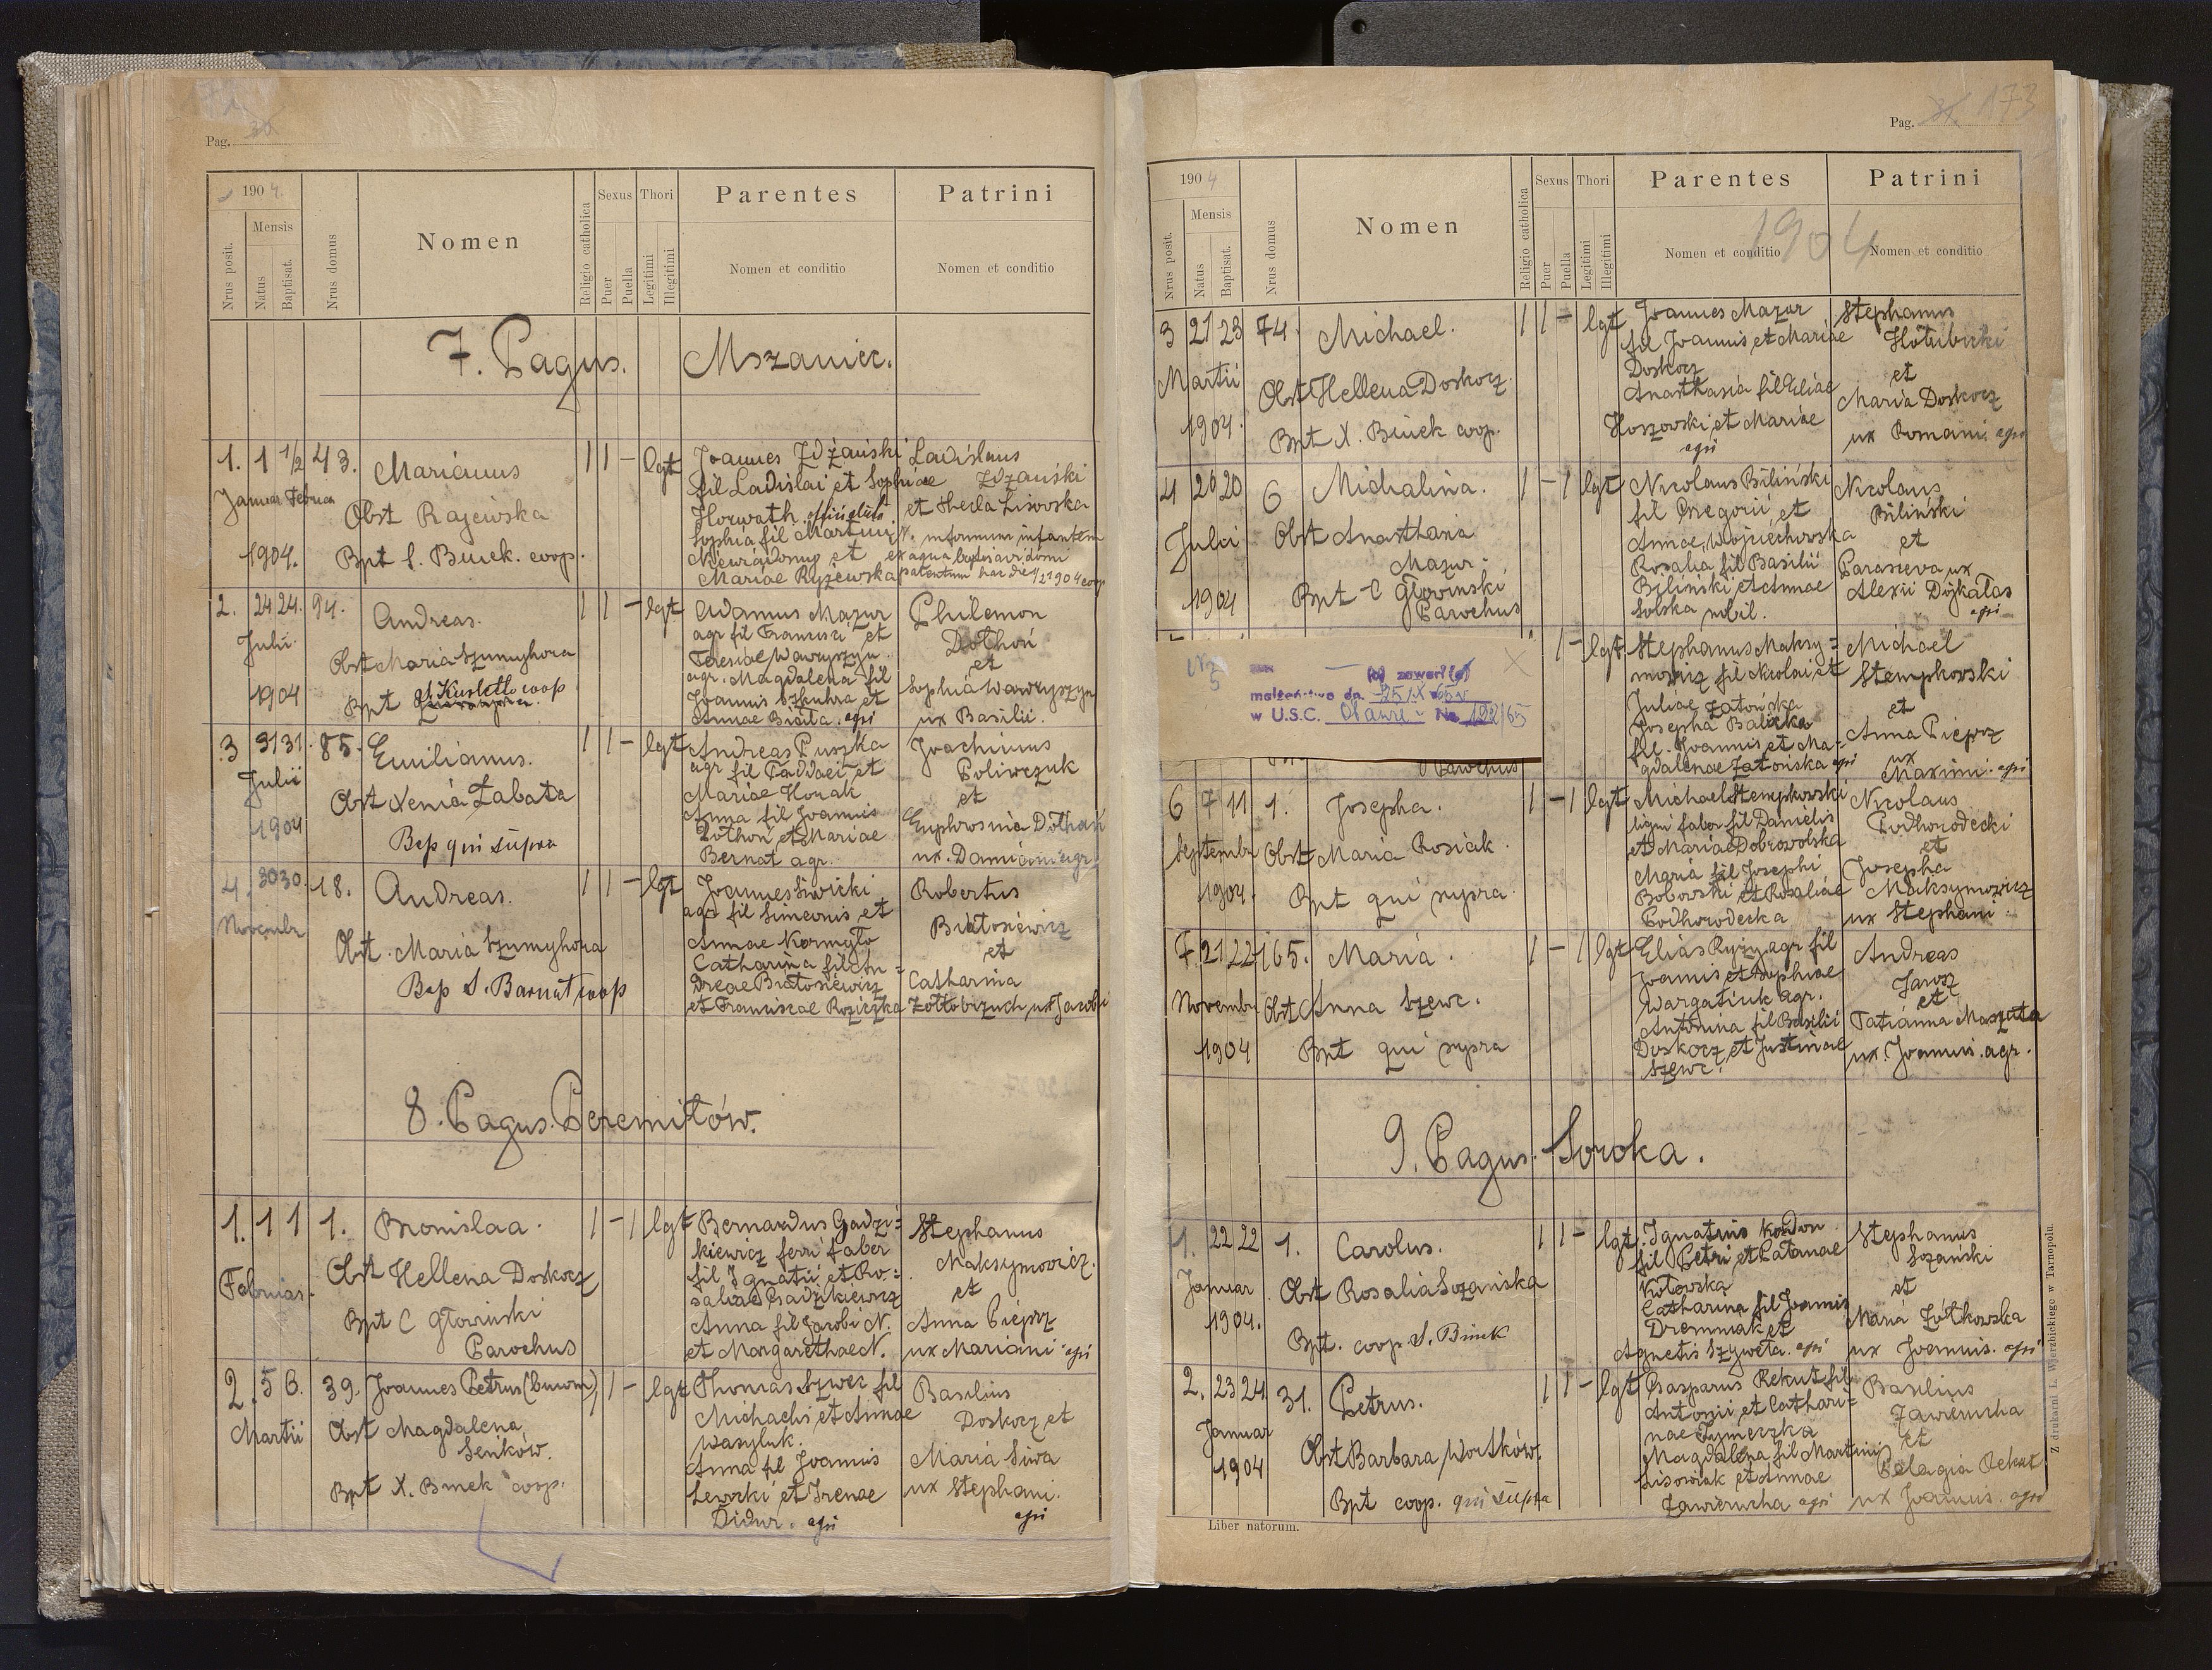 Pag. 30
1904.
Mensis
Nrus posit.
Natus
Baptisat.
Nrus domus
Nomen
Religio catholica
Sexus
Puer
Puella
Thori
Legitimi
Illegitimi
Parentes
Nomen et conditio
Patrini
Nomen et conditio
7. Pagus. Mszaniec.
1. 1 1/2 43. Marianus 1 1 - lgt
Januar Februar
1904.
Obst Rajewska
Bpt S. Binek. coop.
Joannes Zdżański
fil Ladislai et Sophiae
Horwath
Sophia fil Martini
et
Mariae Ryżewska
Ladislaus
Zdżański
et Thecla Lisowska
infirmum infantem
ex aqua domi
2. 24 24. 94. Andreas. 1 1 - lgt
Julii
1904
Obst Maria Szumyhora
Bpt coop
Adamus Mazur
agr fil Francisci et
Teresiae Wawryszyn
agr. Magdalena fil
Joannis Szkuhra et
Annae Biała. agri
Philemon
Dołhoń
et
Sophia Wawryszyn
ux Basilii.
3 31 31. 85. Emilianus. 1 1 - lgt
Julii
1904
Obst Xenia Żabata
Bap qui supra
Andreas Puszka
agr fil Taddaei et
Mariae Horak
Anna fil Joannis
Dołhoń et Mariae
Bernat agr.
Joachimus
Poliwczuk
et
Euphrosina Dołhań
ux. Damiani agr.
4. 30 30. 18. Andreas. 1 1 - lgt
Novembr
Obst. Maria Szumyhora
Bap S. Barnat coop
Joannes Siwicki
agr fil Simeonis et
Annae Kormyło
Catharina fil An=
dreae Białosiewicz
et Franciscae Rozieczka
Robertus
Białosiewicz
et
Catharina
Żółtobrzuch ux Jacobi
8. Pagus. Peremiłów.
1. 1 1 1. Bronislaa. 1 - 1 lgt
Februar.
Obst Hellena Doskocz
Bpt C Głowiński
Parochus
Bernardus Gadzi=
kiewicz ferri faber
fil Ignatii et Ro=
saliae Gadzikiewicz
Anna fil Jacobi N.
et Margarethae N.
Stephanus
Maksymowicz.
et
Anna Pieprz
ux Mariani agri
2. 5 6. 39. Joannes Petrus (binom), 1 - lgt
Martii
Obst Magdalena
Seńków.
Bpt X. Binek coop.
Thomas Szwec fil
Michaelis et Annae
Wasyluk.
Anna fil Joannis
Lewicki et Irenae
Didur. agri
Basilius
Doskocz et
Maria Siwa
ux Stephani.
agri
Pag. 173
1904
Mensis
Nrus posit.
Natus
Baptisat.
Nrus domus
Nomen
Religio catholica
Sexus
Puer
Puella
Thori
Legitimi
Illegitimi
Parentes
Nomen et conditio
Patrini
Nomen et conditio
1904
3 21 23 74. Michael. 1 1 - lgt
Martii
1904.
Obst Hellena Doskocz.
Bpt X. Binek coop.
Joannes Mazur
fil Joannis et Mariae
Doskocz
Anasthasia fil Eliae
Hoszowski et Mariae
agri
Stephanus
Hołubicki
et
Maria Doskocz
ux Romani agri
4 26 20 6 Michalina. 1 - 1 lgt
Julii
1904
Obst Anasthasia
Mazur
Bpt C Głowiński
Parochus
Nicolaus Biliński
fil Gregorii et
Annae Wojciechowska
Rosalia fil Basilii
Biliński et Annae
Solska nobil.
Nicolaus
Biliński
et
Parasceva ux
Alexii Dojkałas
agri
Nr
5
(b) zawarł(a)
małżeństwo dn. 25 IX 65 w
w U.S.C. Oławie Nr 192/65
Parochus
1 - lgt
Stephanus Maksy=
mowicz fil Nicolai et
Juliae Zatońska
Josepha Balicka
fil. Joannis et Ma=
gdalenae Zatońska agri
Michael
Stempkowski
et
Anna Pieprz
ux
Maximi. agri
6 7 11 1. Josepha. 1 - 1 lgt
Septembr
1904.
Obst Maria Rosiak.
Bpt qui supra.
Michael Stempkowski
ligni faber fil Danielis
et Mariae Dobrowolska
Maria fil Josephi
Bobowski et Rosaliae
Podhorodecka
Nicolaus
Podhorodecki
et
Josepha
Maksymowicz
ux Stephani.
7. 21 22 165. Maria. 1 - 1 lgt
Novembr
1904
Obst Anna Szewc.
Bpt qui supra
Elias Ryży agr fil
Joannis et Sophiae
Wargatiuk agr.
Antonina fil Basilii
Doskocz et Justinae
Szewc.
Andreas
Jarosz
et
Tatianna Maszuta
ux. Joannis. agr.
9. Pagus. Soroka.
1. 22 22 1. Carolus. 1 1 - lgt.
Januar
1904.
Obst Rosalia Sozańska
Bpt. coop. S. Binek
Ignatius Kordon
fil Petri et Tatianae
Kotowska
Catharina fil Joannis
Dremniak et
Agnetis Szyweta. agri
Stephanus
Sozański
et
Maria Żółtkowska
ux Joannis. agri
2. 23 24 31. Petrus. 1 1 - lgt
Januar
1904
Obst Barbara Wortków.
Bpt coop. qui supra
Gasparus Rekut fil
Antonii et Cathari=
nae Tymeczka
Magdalena fil Martini
Lisowiak et Annae
Zawierucha agri
Basilius
Zawierucha
et
Pelagia Rekut
ux Joannis. agri
Liber natorum.
Z drukarni L. Wierzbickiego w Tarnopolu.